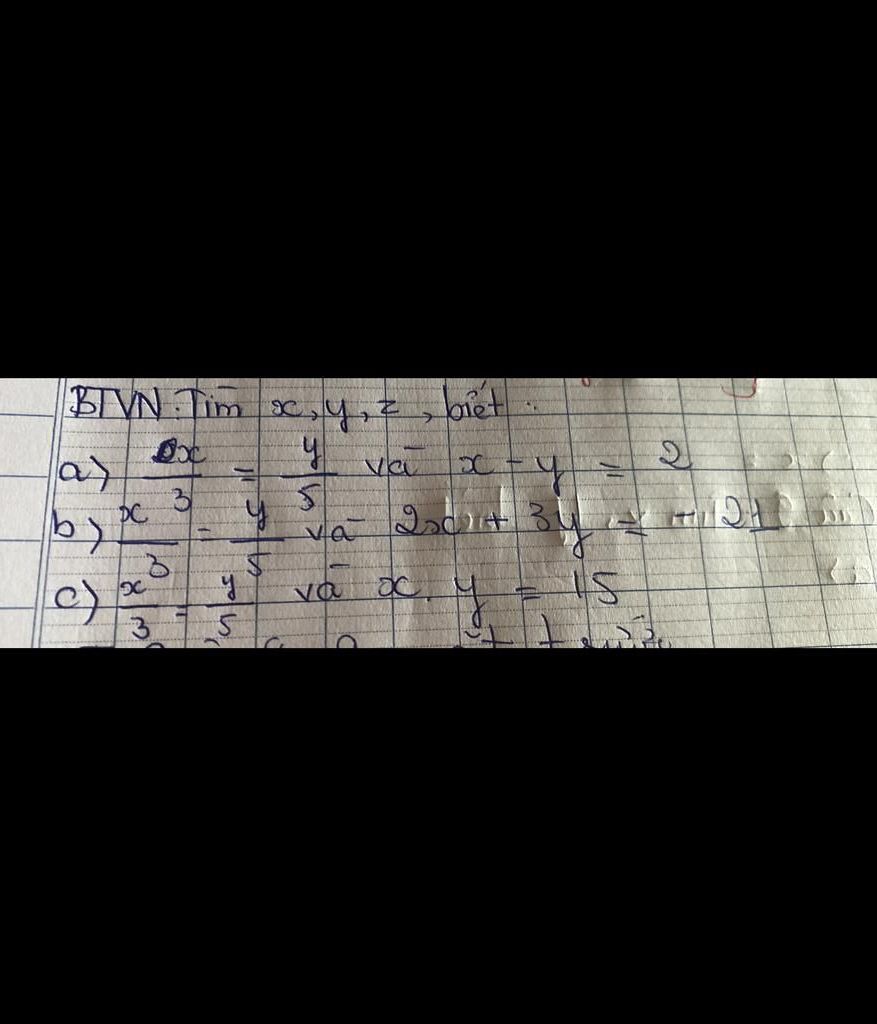 BTVN: Tìm x, y, z, biết:
a) x/3 = y/5 và x - y = 2
b) x/3 = y/5 và 2x + 3y = -21
c) x/3 = y/5 và x.y = 15